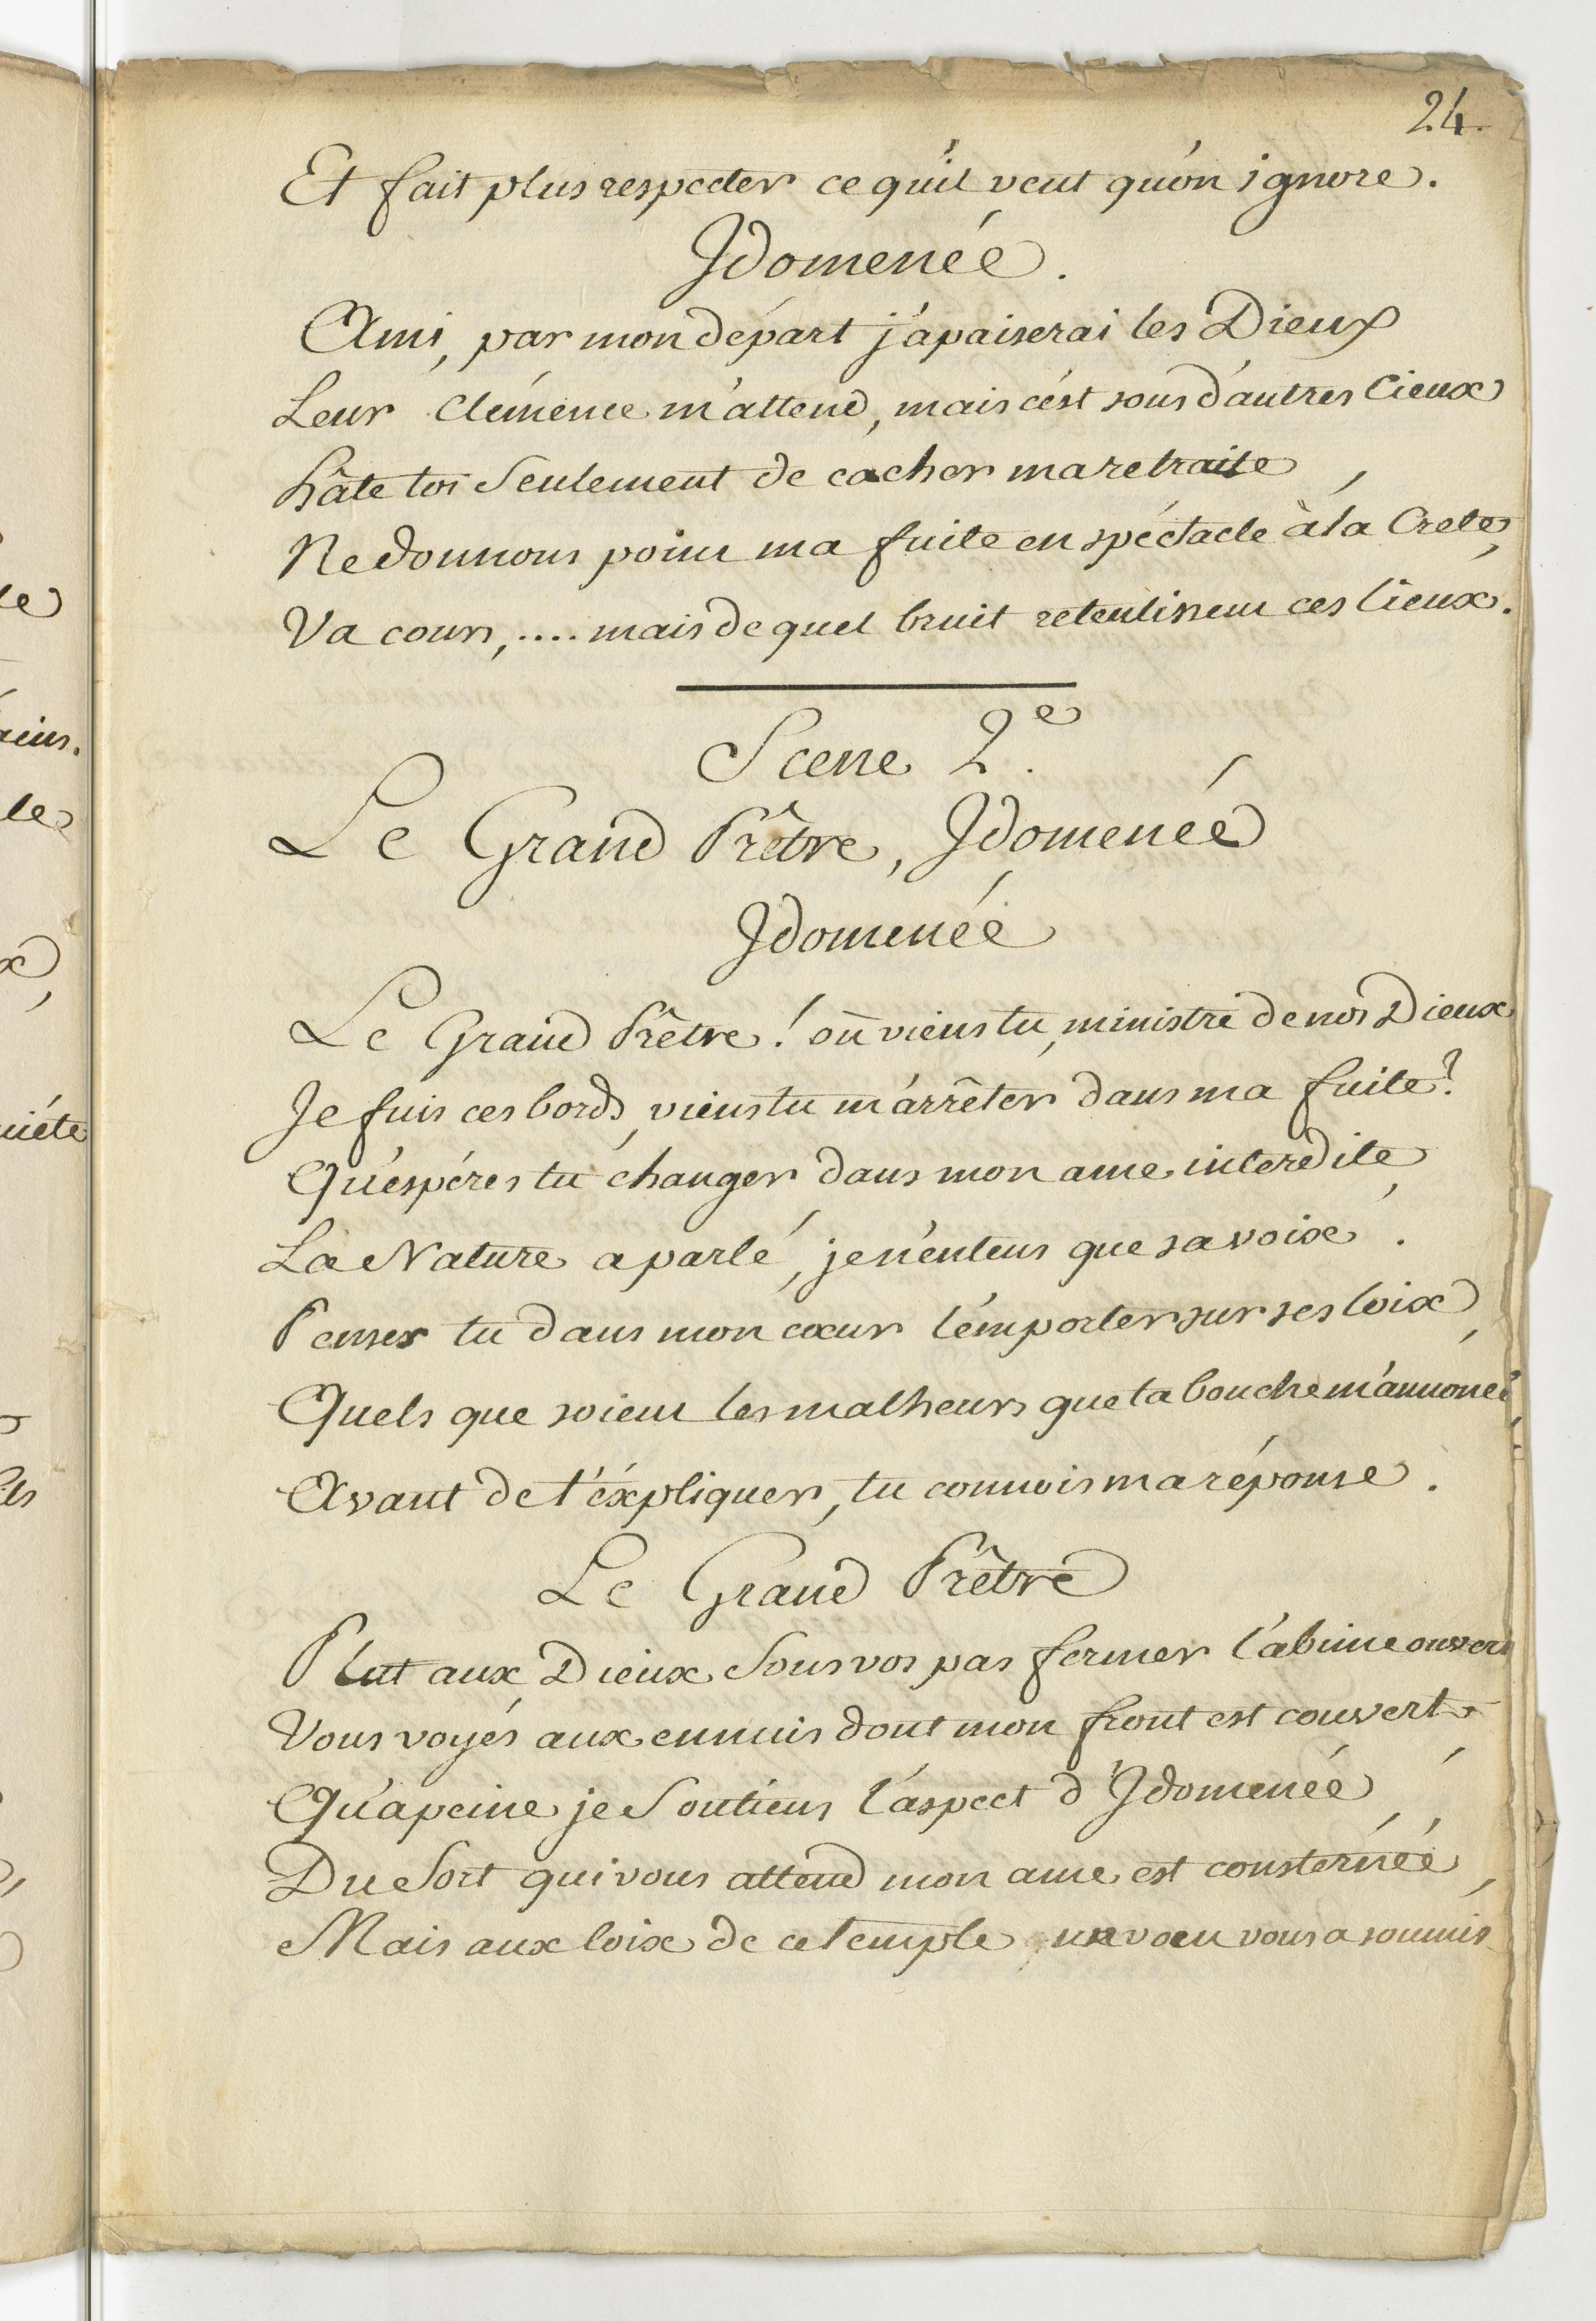 24.
Et fait plus respecter ce qu'il veut qu'on ignore.
Jdomenée.
Ami, par mon départ j'apaiserai les Dieux
Leur clémence m'attend, mais c'est sous d'autres Cieux
hâte toi Seulement de cacher ma retraite,
Ne donnons point ma fuite en spéctacle à la Crete,
Va cours,.... mais de quel bruit retentissent ces lieux.
Scene 2.e
Le Grand Prêtre, Jdomenée
Jdomenée
Le Grand Prêtre! où viens tu, ministre de nos Dieux
Je fuis ces bords, viens tu m'arrêter dans ma fuite?
Qu'espéres tu changer dans mon ame interdite,
La Nature a parlé, je n'entens que sa voix.
Penses tu dans mon cœur l'emporter sur ses loix,
Quels que soient les malheurs que ta bouche m'annonce,
Avant de t'éxpliquer, tu connois ma réponse.
Le Grand Prêtre
Plut aux Dieux Sous vos pas fermer l'abime ouvert
Vous voyés aux ennuis dont mon front est couvert
Qu'apeine je Soutiens l'aspect d'Jdomenée,
Du Sort qui vous attend mon ame est consternée,
Mais aux loix de ce temple un vœu vous a soumis
le
ile
x,
uiéte